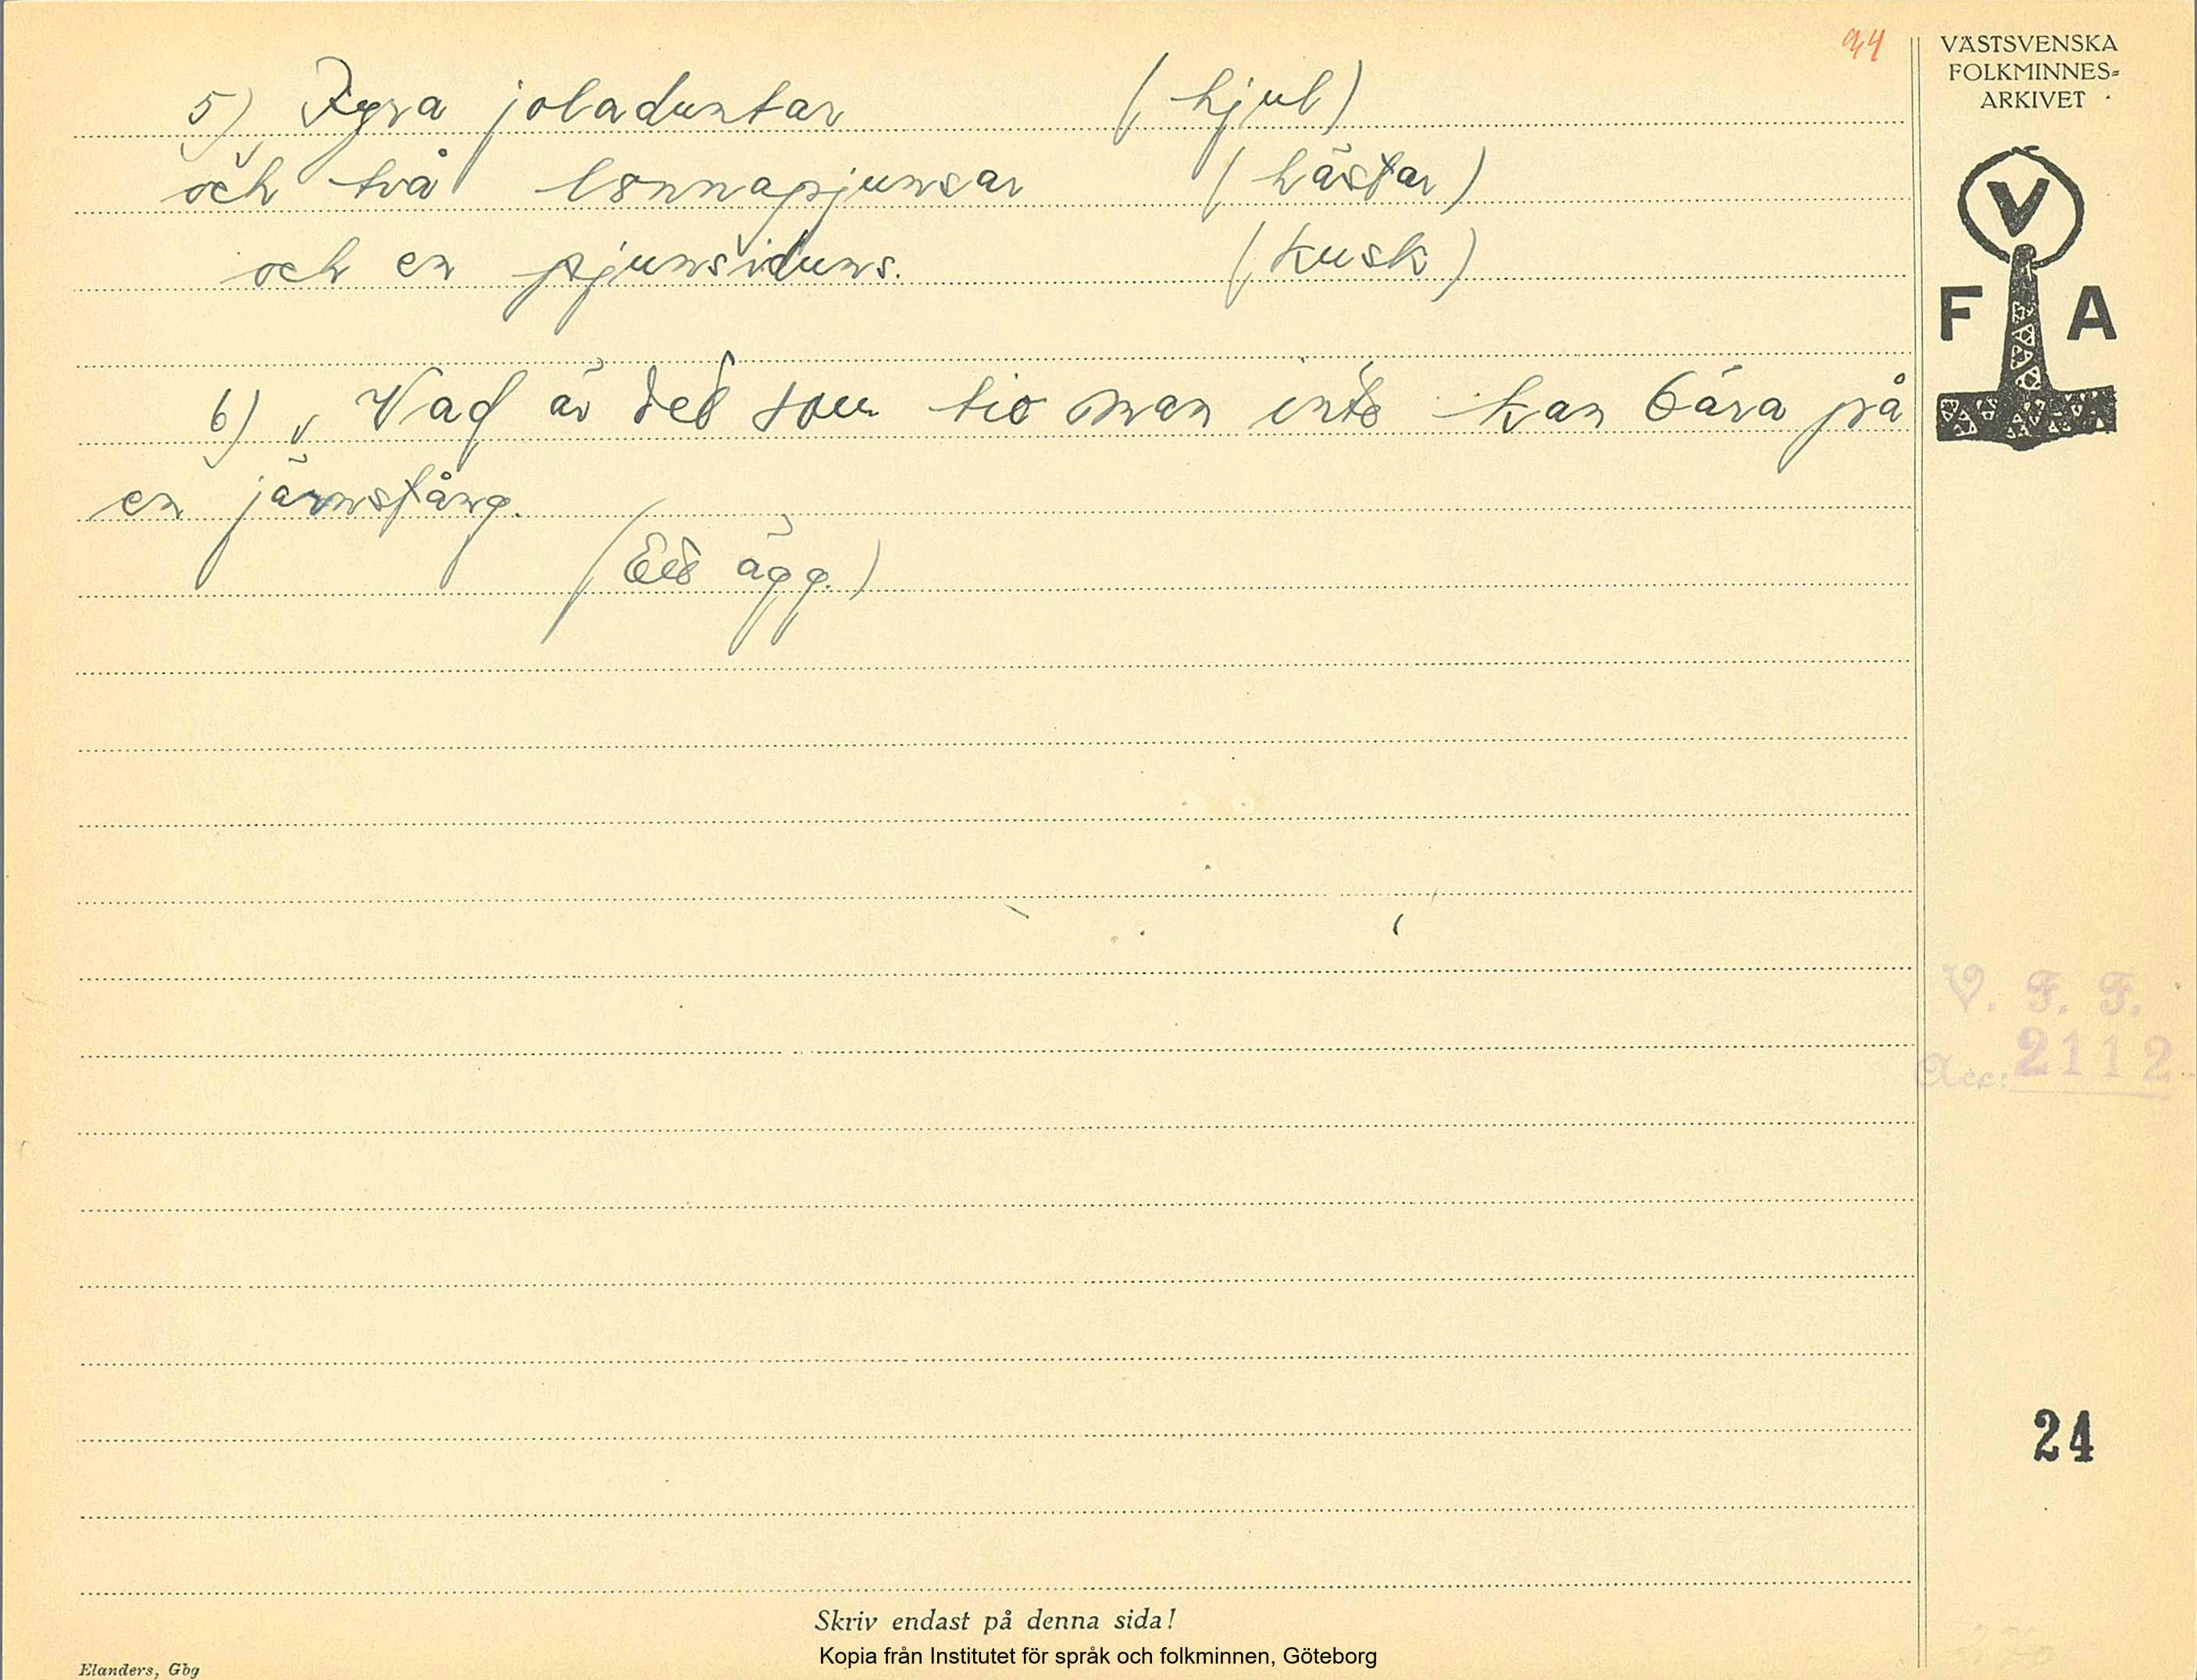 94
VÄSTSVENSKA
FOLKMINNES-
ARKIVET
V
F A
5) Fyra joladuntar (hjul)
och två lönnapjunsar (hästar)
och en pjunsiduns. (kusk)
6) Vad är det som tio man inte kan bära på
en järnstång.
(Ett ägg.)
V. F. F.
Acc: 2112
24
Skriv endast på denna sida!
Kopia från Institutet för språk och folkminnen, Göteborg
Elanders, Gbg